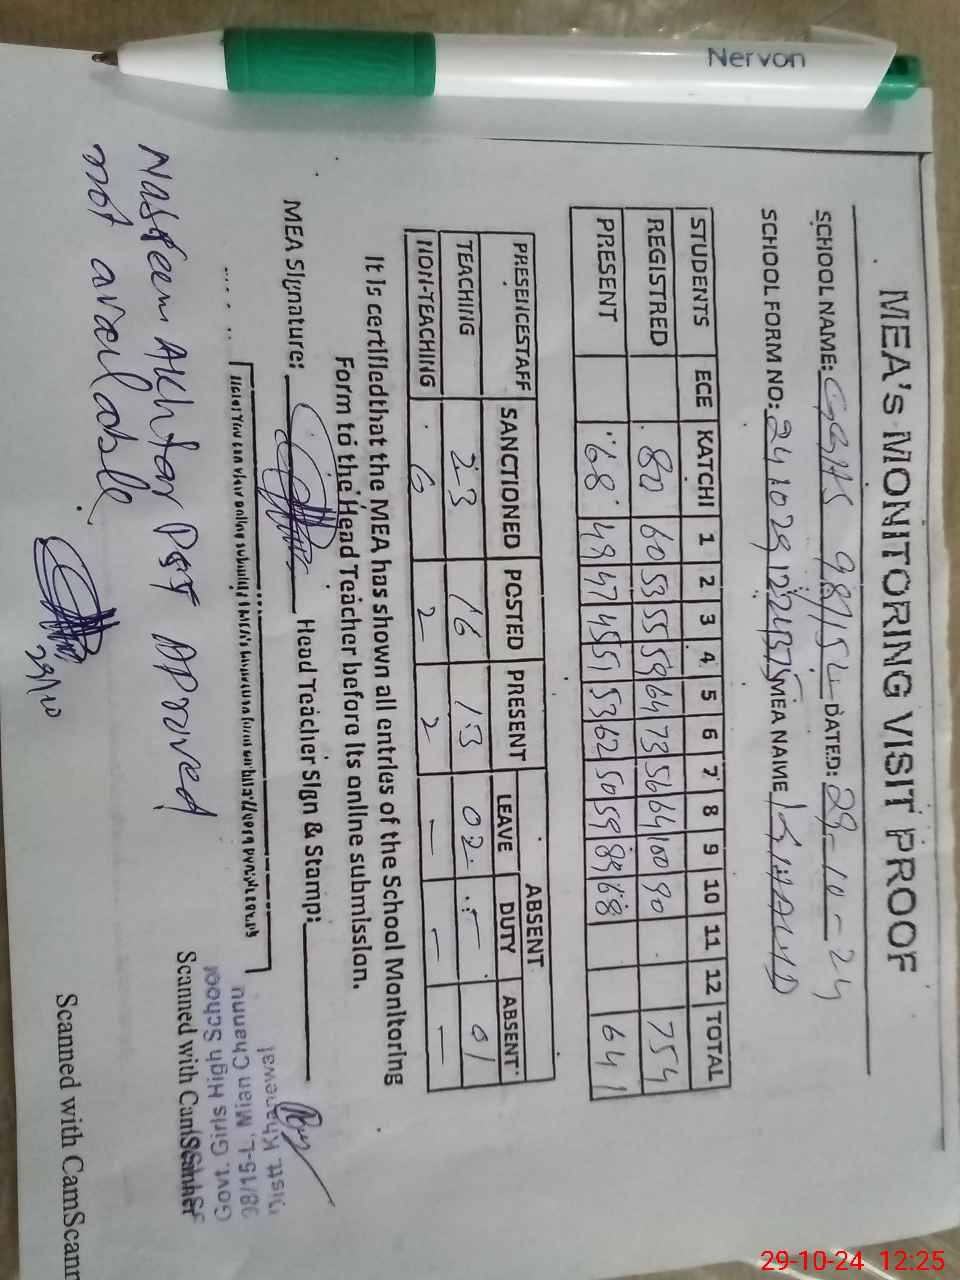 Nervon
MEA'S MONITORING VISIT PROOF
SCHOOL NAME: GGHS 98/15L DATED: 29-10-24
SCHOOL FORM NO: MEA NAME
STUDENTS ECE KATCHI 1 2 3 4 5 6 7 8 9 10 11 12 TOTAL
REGISTRED 80 60 53 55 59 64 73 56 64 100 90 754
PRESENT 68 49 47 45 51 53 62 50 59 89 68 641
PRESENCESTAFF SANCTIONED POSTED PRESENT ABSENT
LEAVE DUTY ABSENT
TEACHING 23 16 13 02 - 01
NON-TEACHING 6 2 2 - - -
It is certifiedthat the MEA has shown all entries of the School Monitoring
Form to the Head Teacher before its online submission.
MEA Signature: Head Teacher Sign & Stamp:
Distt. Khanewal
98/15-L, Mian Channu
Govt. Girls High School
Scanned with CamScanner
Naseem Akhtar PST Approved
not available.
29/10
Scanned with CamScann
29-10-24 12:25